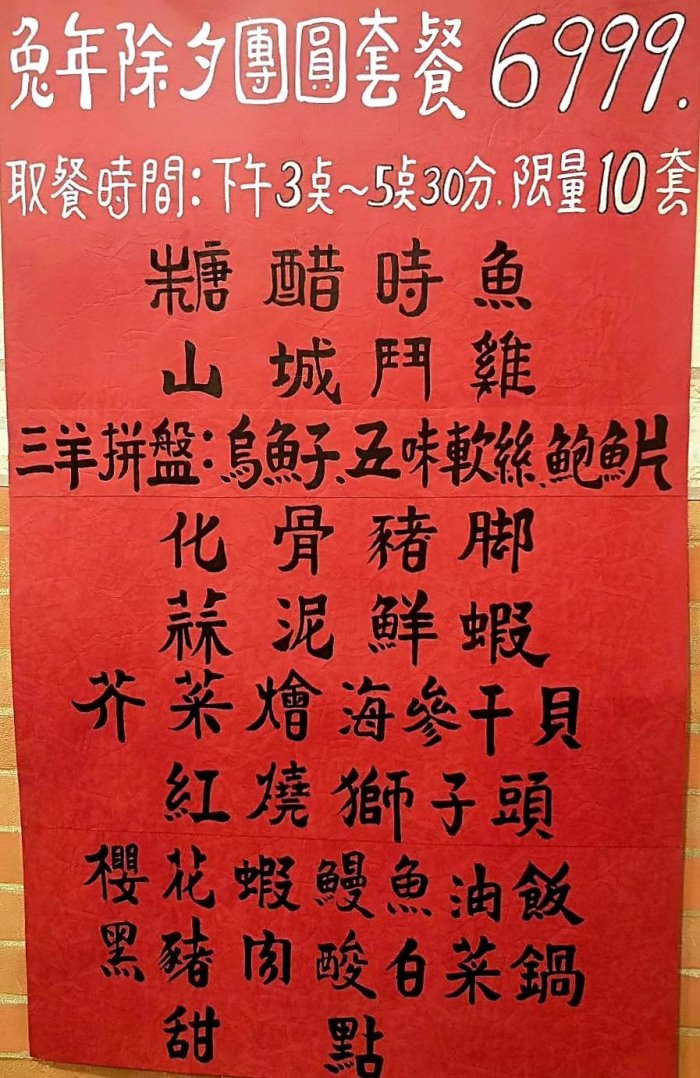 兔年除夕團圓套餐 6999.
取餐時間:下午3点~5点30分.限量10套
糖醋時魚
山城鬥雞
三羊拼盤:烏魚子.五味軟絲.鮑魚片
化骨豬脚
蒜泥鮮蝦
芥菜燴海參干貝
紅燒獅子頭
櫻花蝦鰻魚油飯
黑豬肉酸白菜鍋
甜點